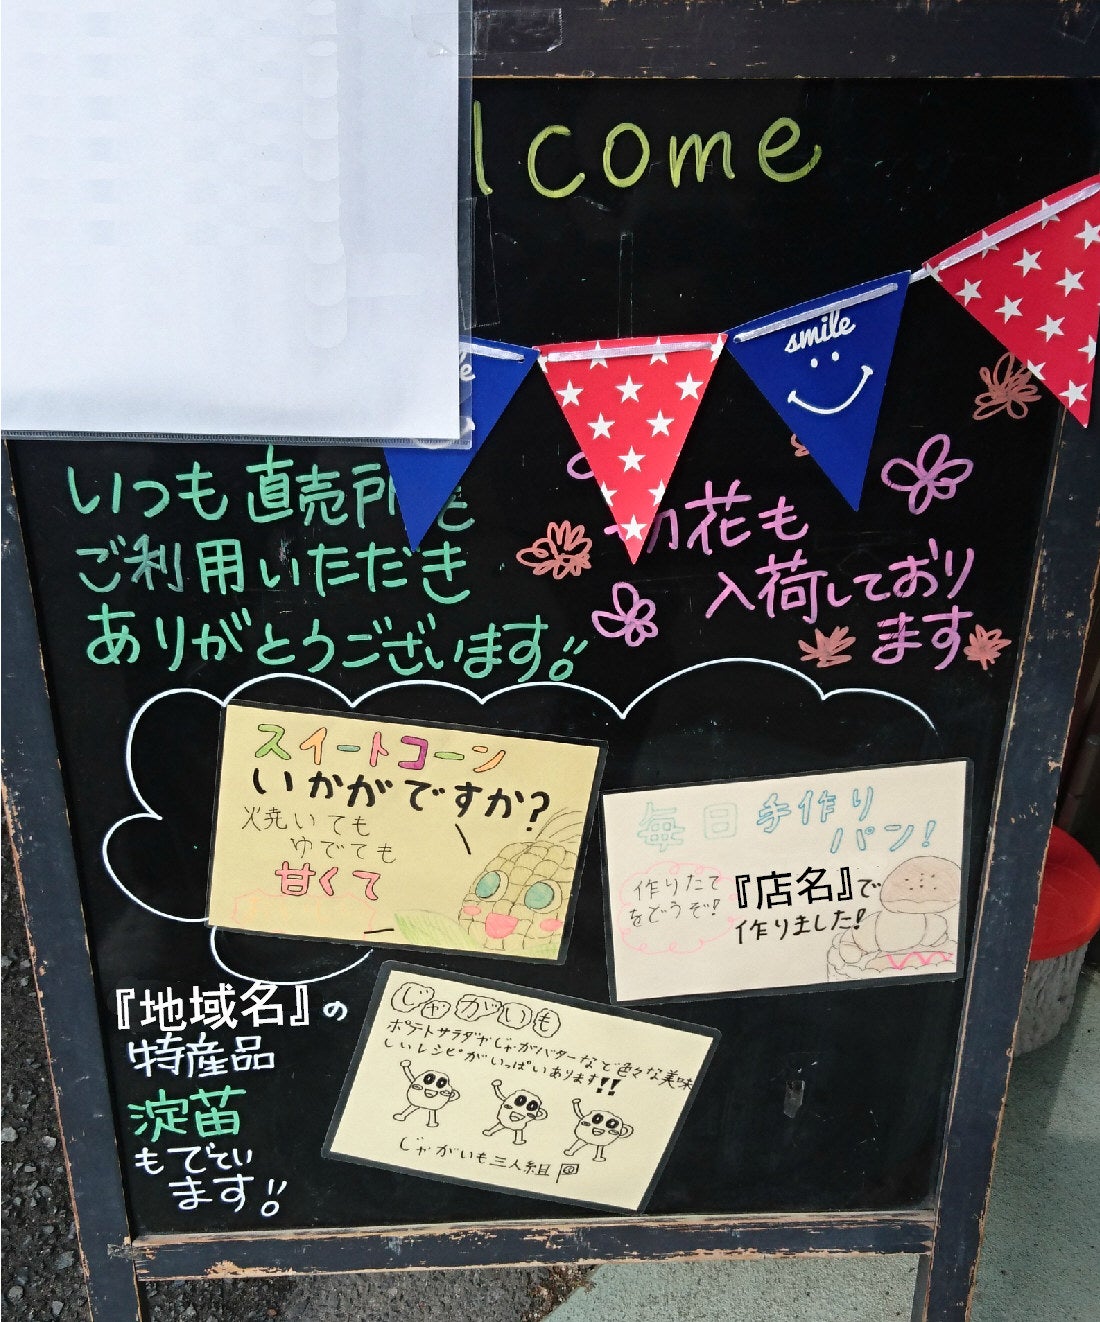 lcome
smile
いつも直売所を
ご利用いただき
ありがとうございます!!
切花も
入荷しており
ます
スイートコーン
いかがですか?
焼いても
ゆでても
甘くて
毎日手作り
パン!
作りたて
をどうぞ!
『店名』で
作りました!
『地域名』の
特産品
淀苗
もでてい
ます!!
じゃがいも
ポテトサラダやじゃがバターなど色々な美味
しいレシピがいっぱいあります!!
じゃがいも三人組